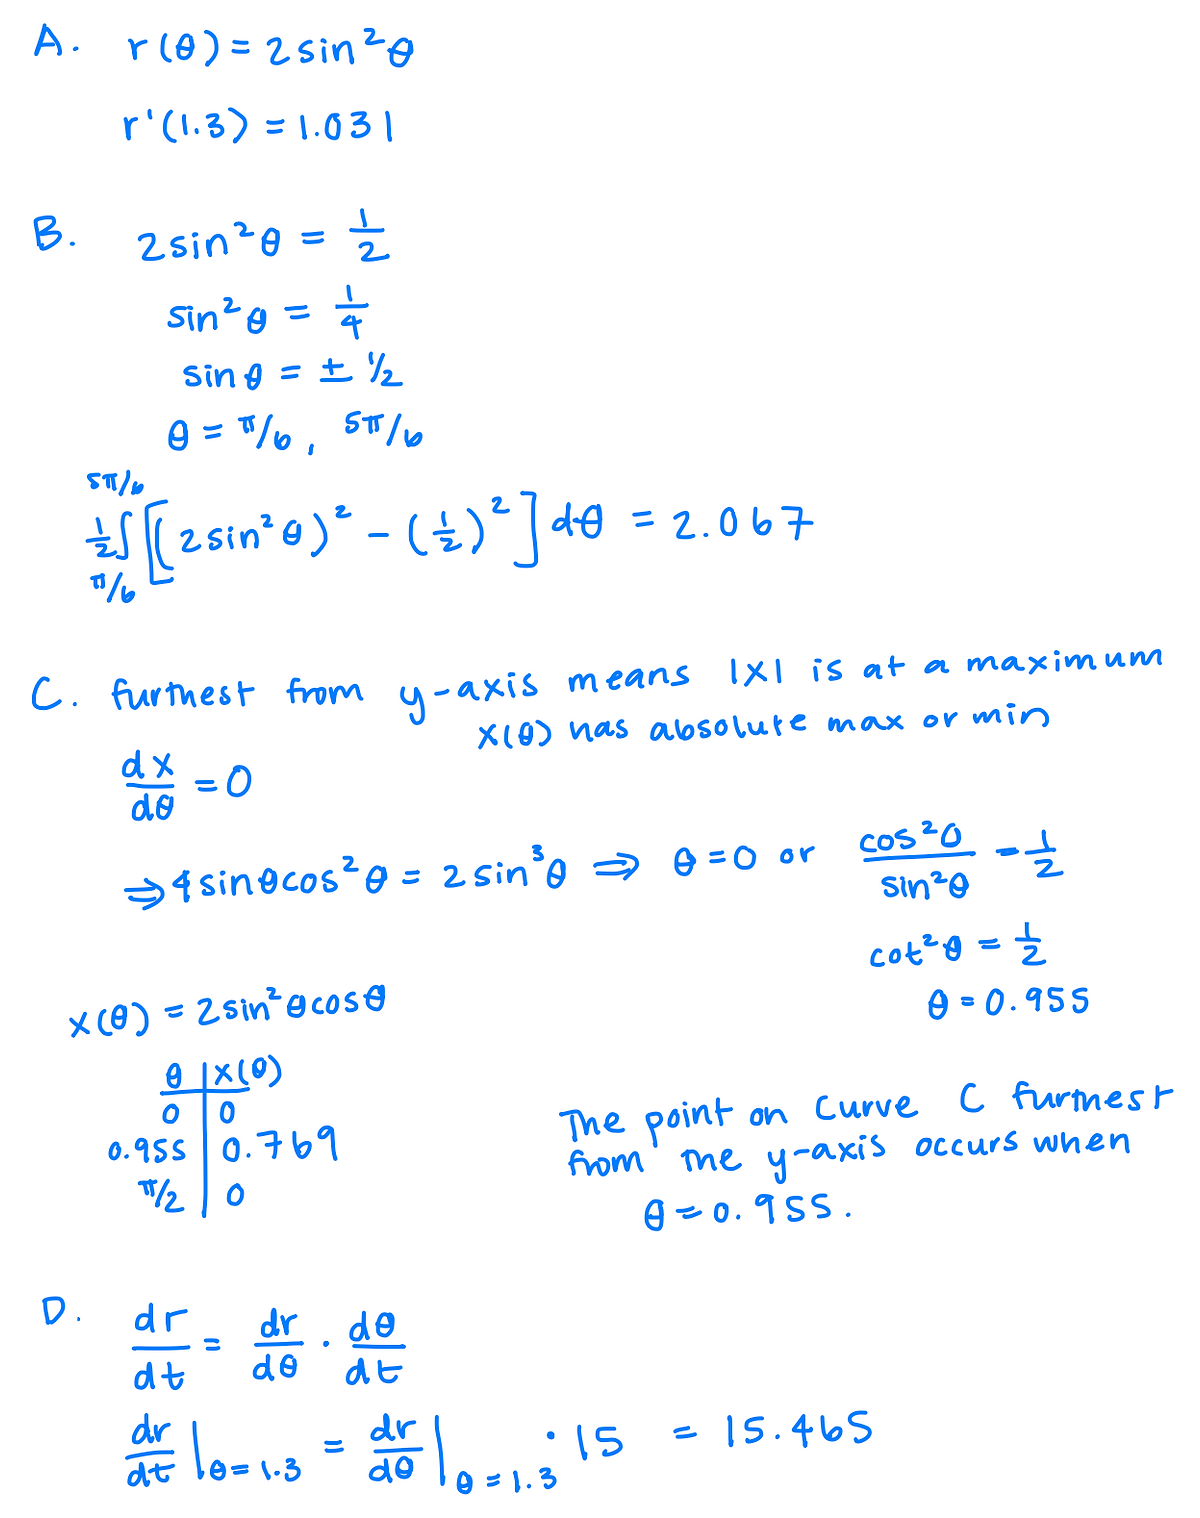 A. r(θ) = 2 sin²θ
r'(1.3) = 1.031
B. 2 sin²θ = 1/2
sin²θ = 1/4
sin θ = ± 1/2
θ = π/6, 5π/6
1/2 ∫_{π/6}^{5π/6} [(2 sin²θ)² - (1/2)²] dθ = 2.067
C. furthest from y-axis means |x| is at a maximum
x(θ) has absolute max or min
dx/dθ = 0
⇒ 4 sin θ cos²θ = 2 sin³θ ⇒ θ = 0 or cos²θ/sin²θ = 1/2
cot²θ = 1/2
θ = 0.955
x(θ) = 2 sin²θ cos θ
θ | x(θ)
0 | 0
0.955 | 0.769
π/2 | 0
The point on curve C furthest
from the y-axis occurs when
θ = 0.955.
D. dr/dt = dr/dθ · dθ/dt
dr/dt |θ = 1.3 = dr/dθ |θ = 1.3 · 15 = 15.465